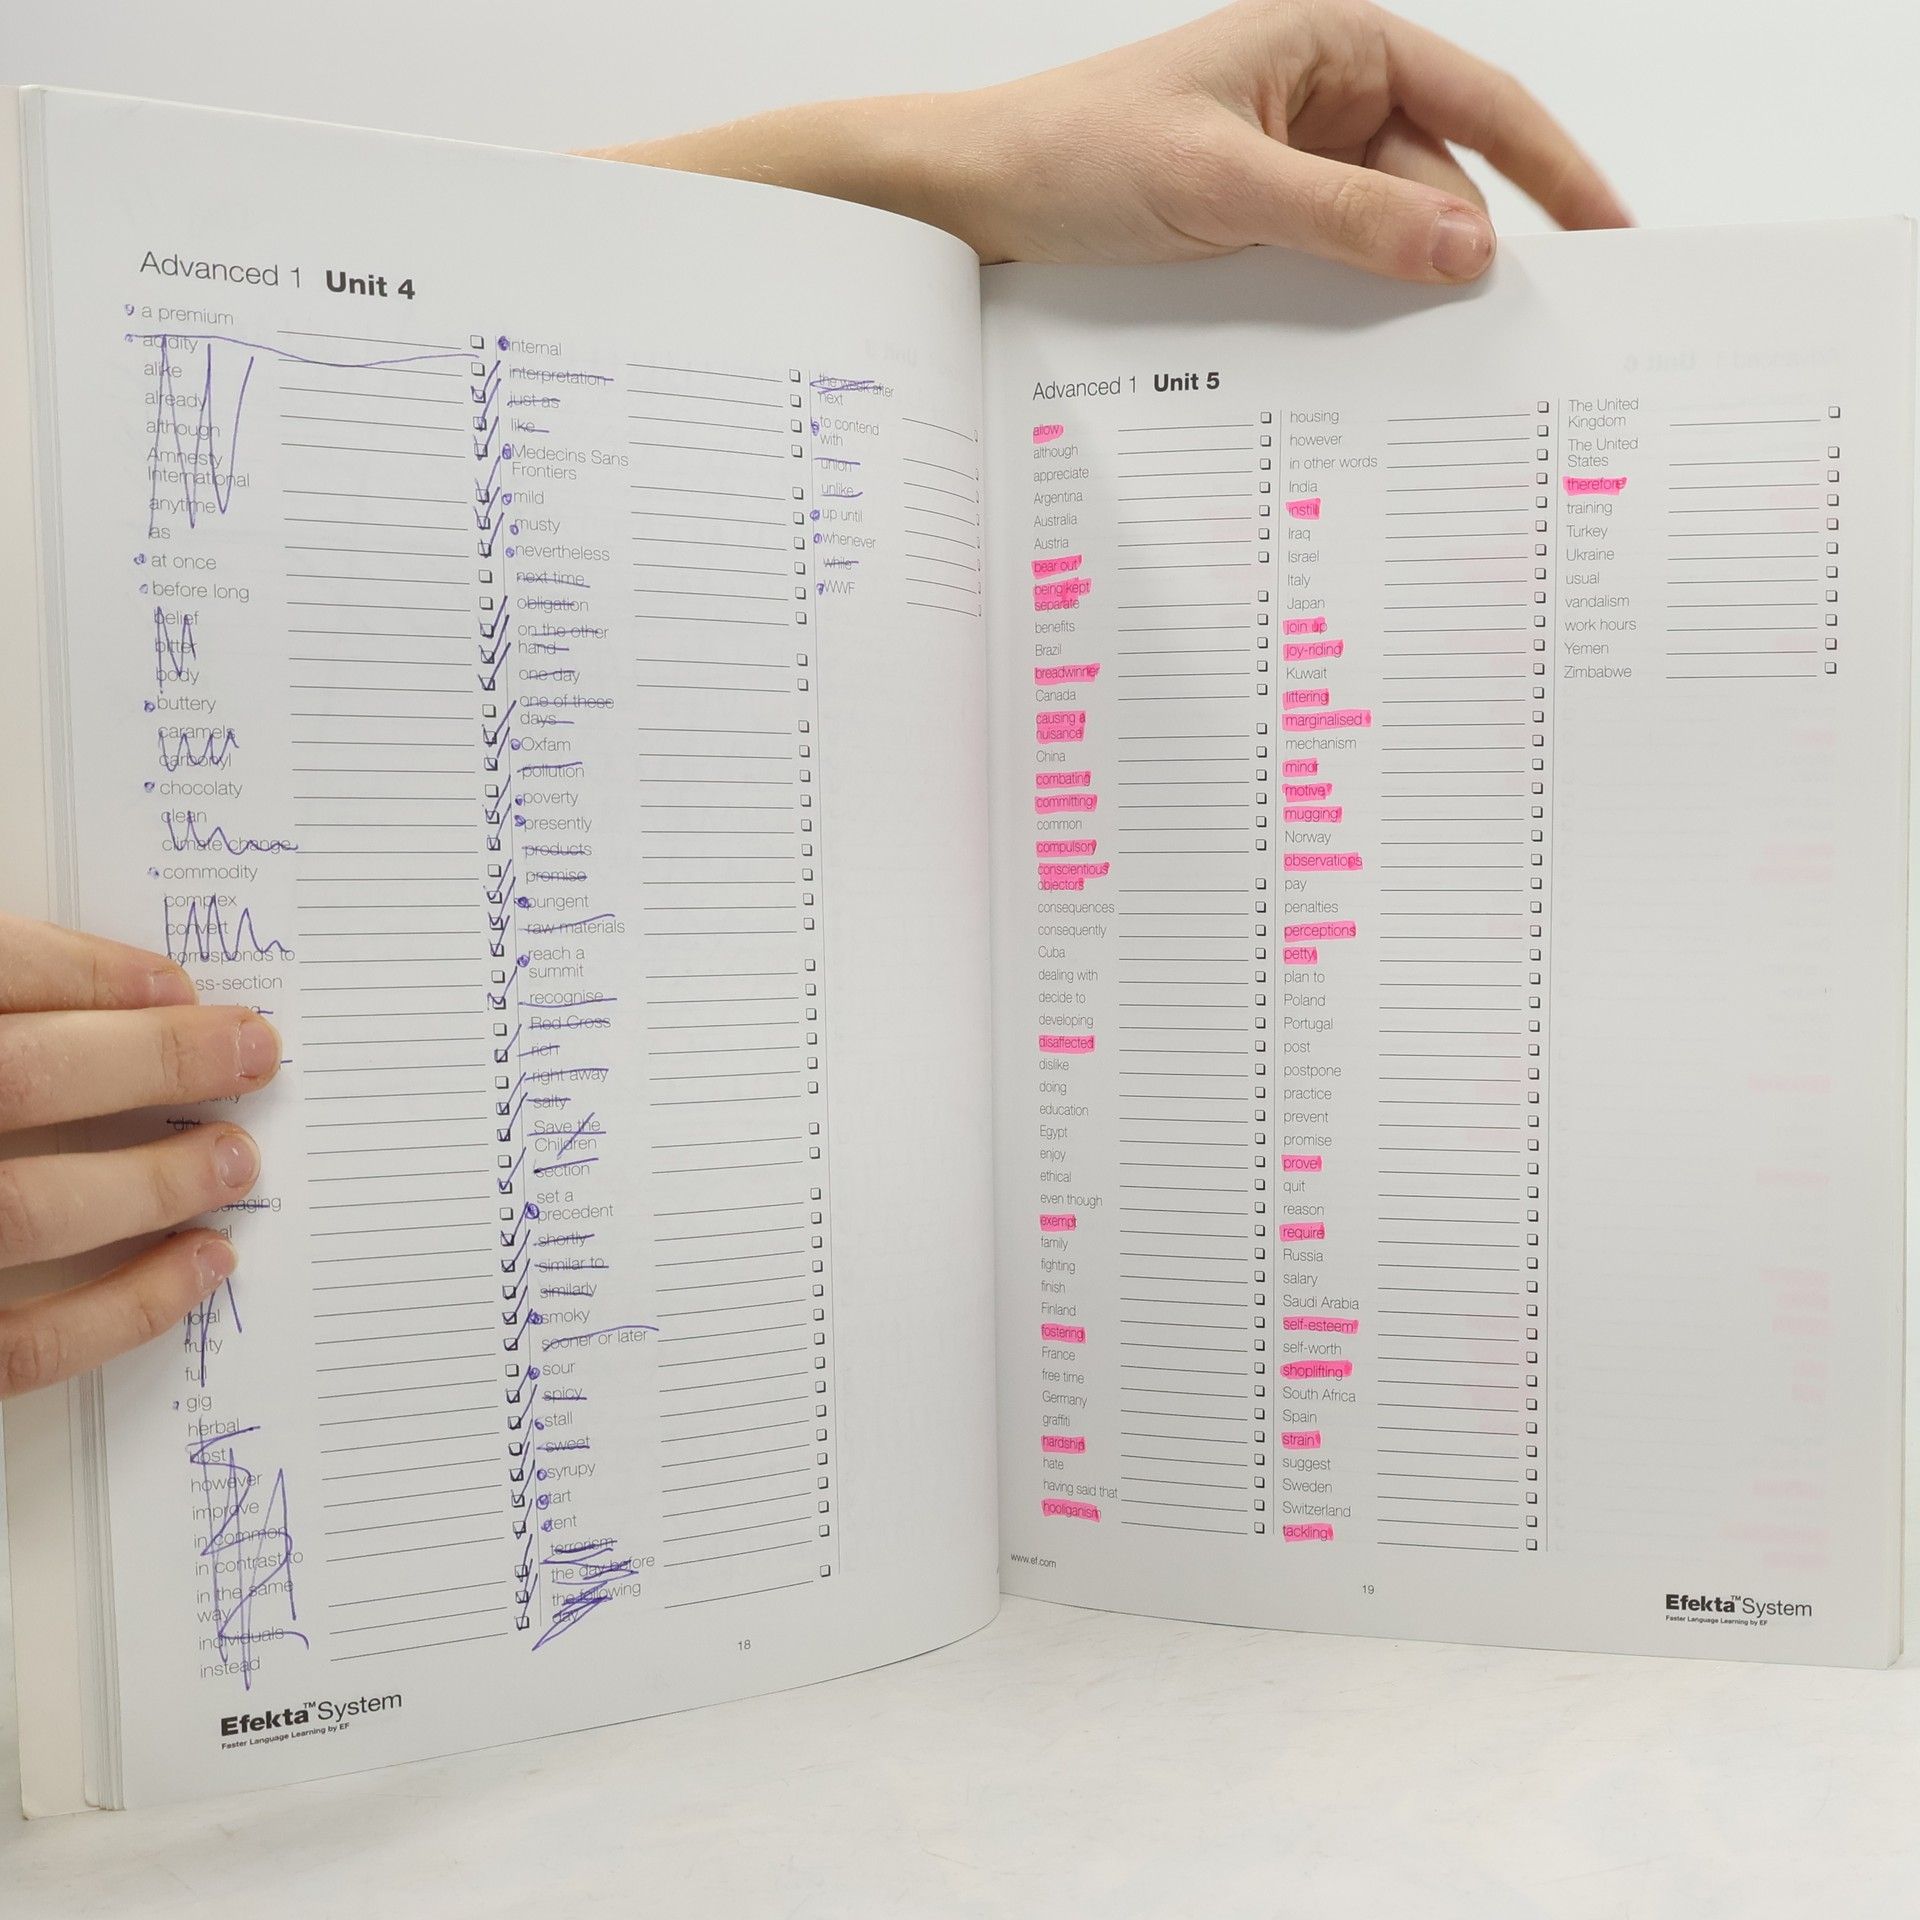 Advanced 1 Unit 4
a premium
acidity
alike
already
although
Amnesty
International
anytime
as
at once
before long
belief
bitter
body
buttery
caramels
carbonyl
chocolaty
clean
climate change
commodity
complex
convert
corresponds to
ss-section
floral
fruity
full
gig
herbal
host
however
improve
in common
in contrast to
in the same
way
individuals
instead
internal
interpretation
just as
like
Medecins Sans
Frontiers
mild
musty
nevertheless
next time
obligation
on the other
hand
one day
one of these
days
Oxfam
pollution
poverty
presently
products
promise
pungent
raw materials
reach a
summit
recognise
Red Cross
rich
right away
salty
Save the
Children
section
set a
precedent
shortly
similar to
similarly
smoky
sooner or later
sour
spicy
stall
sweet
syrupy
tart
tent
terrorism
the day before
the following
day
the week after
next
to contend
with
union
unlike
up until
whenever
while
WWF
18
Efekta™System
Faster Language Learning by EF
Advanced 1 Unit 5
allow
although
appreciate
Argentina
Australia
Austria
bear out
being kept
separate
benefits
Brazil
breadwinner
Canada
causing a
nuisance
China
combating
committing
common
compulsory
conscientious
objectors
consequences
consequently
Cuba
dealing with
decide to
developing
disaffected
dislike
doing
education
Egypt
enjoy
ethical
even though
exempt
family
fighting
finish
Finland
fostering
France
free time
Germany
graffiti
hardship
hate
having said that
hooliganism
housing
however
in other words
India
instil
Iraq
Israel
Italy
Japan
join up
joy-riding
Kuwait
littering
marginalised
mechanism
mind
motive
mugging
Norway
observations
pay
penalties
perceptions
petty
plan to
Poland
Portugal
post
postpone
practice
prevent
promise
prove
quit
reason
require
Russia
salary
Saudi Arabia
self-esteem
self-worth
shoplifting
South Africa
Spain
strain
suggest
Sweden
Switzerland
tackling
The United
Kingdom
The United
States
therefore
training
Turkey
Ukraine
usual
vandalism
work hours
Yemen
Zimbabwe
www.ef.com
19
Efekta™System
Faster Language Learning by EF